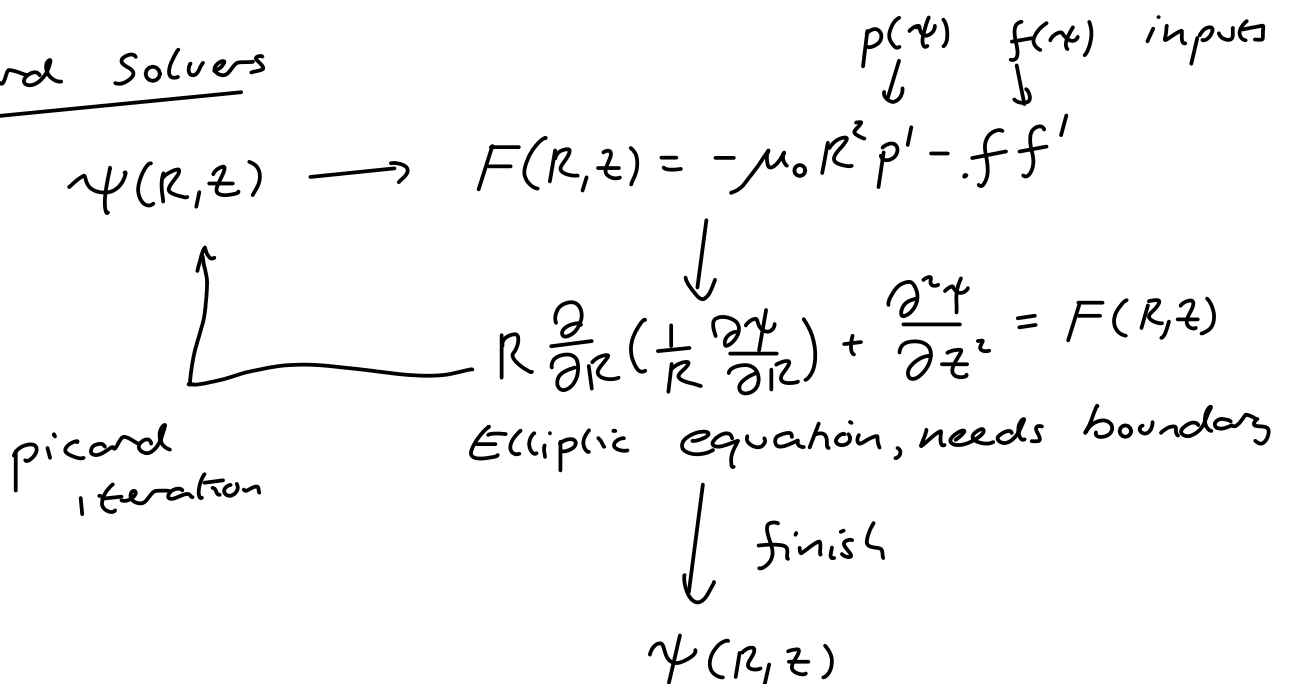 rd Solvers
p(ψ) f(ψ) inputs
ψ(R,Z) → F(R,Z) = -μ₀R²p' - ff'
R ∂/∂R (1/R ∂ψ/∂R) + ∂²ψ/∂z² = F(R,Z)
picard
iteration
Elliptic equation, needs boundary
finish
ψ(R,Z)